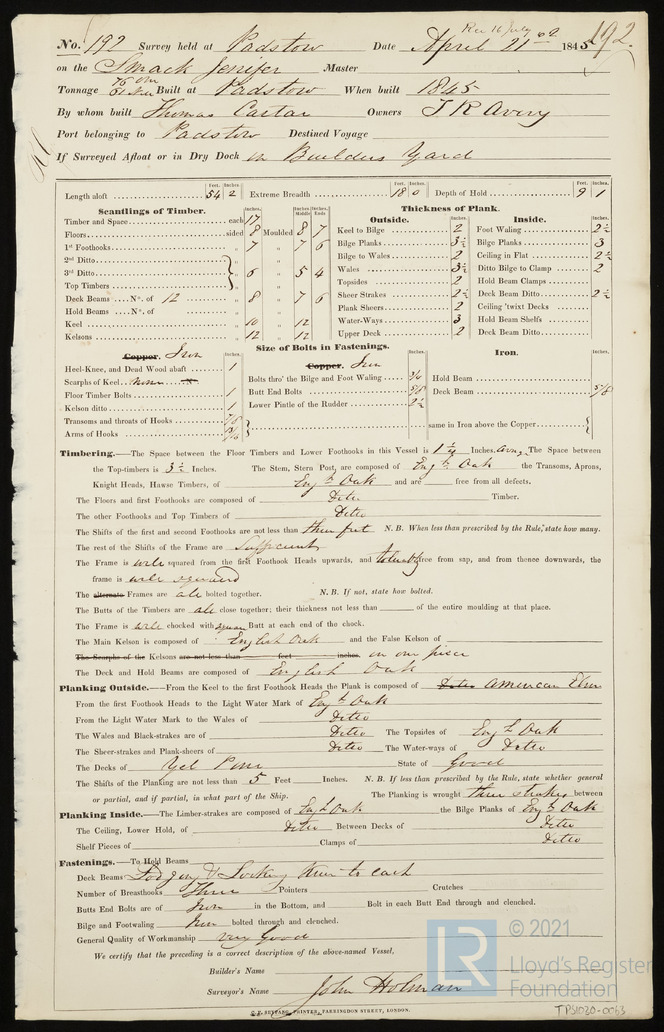 No. 192 Survey held at Padstow Date April 21st 1845 192.
on the Smack Jenifer Master
Tonnage Built at Padstow When built 1845
By whom built Thomas Owners T R Avery
Port belonging to Padstow Destined Voyage
If Surveyed Afloat or in Dry Dock in Builders Yard
Feet. Inches. Feet. Inches. Feet. Inches.
Length aloft 54 2 Extreme Breadth 18 0 Depth of Hold 9 1
Scantlings of Timber.
Timber and Space each 17
Floors sided 8 Moulded 8 7
1st Foothooks 7 7 6
2nd Ditto
3rd Ditto 6 5 4
Top Timbers
Deck Beams No. of 12 8 7 6
Hold Beams No. of
Keel 10 12
Kelsons 12 12
Thickness of Plank.
Outside.
Keel to Bilge 2
Bilge Planks 3½
Bilge to Wales 2
Wales 3½
Topsides 2
Sheer Strakes 2½
Plank Sheers 2
Water-Ways 3
Upper Deck 2
Inside.
Foot Waling 2½
Bilge Planks 3
Ceiling in Flat 2½
Ditto Bilge to Clamp 2
Hold Beam Clamps
Deck Beam Ditto 2½
Ceiling 'twixt Decks
Hold Beam Shelfs
Deck Beam Ditto
Size of Bolts in Fastenings.
Copper. Iron
Heel-Knee, and Dead Wood abaft 1
Scarphs of Keel none
Floor Timber Bolts 1
Kelson ditto 1
Transoms and throats of Hooks 7/8
Arms of Hooks
Copper. Iron
Bolts thro' the Bilge and Foot Waling 3/4
Butt End Bolts 5/8
Lower Pintle of the Rudder 2¼
Iron.
Hold Beam
Deck Beam 5/8
same in Iron above the Copper
Timbering.—The Space between the Floor Timbers and Lower Foothooks in this Vessel is 1 Inches. The Space between
the Top-timbers is 3½ Inches. The Stem, Stern Post, are composed of Engh Oak the Transoms, Aprons,
Knight Heads, Hawse Timbers, of Engh Oak and are free from all defects.
The Floors and first Foothooks are composed of Ditto Timber.
The other Foothooks and Top Timbers of Ditto
The Shifts of the first and second Foothooks are not less than three feet N.B. When less than prescribed by the Rule, state how many.
The rest of the Shifts of the Frame are Sufficient
The Frame is well squared from the first Foothook Heads upwards, and tolerably free from sap, and from thence downwards, the
frame is well squared
The alternate Frames are all bolted together. N.B. If not, state how bolted.
The Butts of the Timbers are all close together; their thickness not less than of the entire moulding at that place.
The Frame is well chocked with square Butt at each end of the chock.
The Main Kelson is composed of English Oak and the False Kelson of
The Scarphs of the Kelsons are not less than feet inches. in one piece
The Deck and Hold Beams are composed of English Oak
Planking Outside.—From the Keel to the first Foothook Heads the Plank is composed of Ditto American Elm
From the first Foothook Heads to the Light Water Mark of Engh Oak
From the Light Water Mark to the Wales of Ditto
The Wales and Black-strakes are of Ditto The Topsides of Engh Oak
The Sheer-strakes and Plank-sheers of Ditto The Water-ways of Ditto
The Decks of Yel Pine State of Good
The Shifts of the Planking are not less than 5 Feet Inches. N.B. If less than prescribed by the Rule, state whether general
or partial, and if partial, in what part of the Ship. The Planking is wrought three strakes between
Planking Inside.—The Limber-strakes are composed of Engh Oak the Bilge Planks of Engh Oak
The Ceiling, Lower Hold, of Ditto Between Decks of Ditto
Shelf Pieces of Clamps of Ditto
Fastenings.—To Hold Beams
Deck Beams Lodging & knees to each
Number of Breasthooks Three Pointers Crutches
Butts End Bolts are of Iron in the Bottom, and Bolt in each Butt End through and clenched.
Bilge and Footwaling Iron bolted through and clenched.
General Quality of Workmanship very Good
We certify that the preceding is a correct description of the above-named Vessel.
Builder's Name
Surveyor's Name John Holman
PRINTER, FARRINGDON STREET, LONDON.
LR © 2021
Lloyd's Register
Foundation